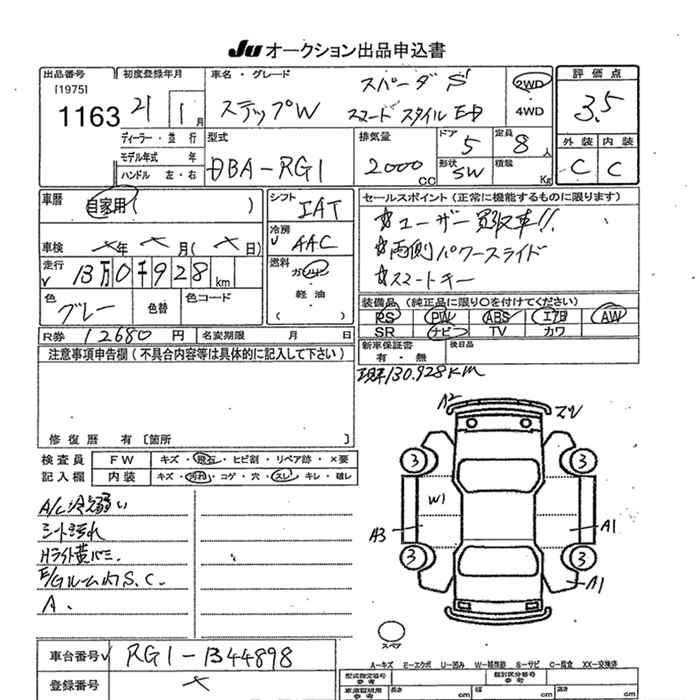 JU オークション出品申込書
出品番号 [1975] 1163
初度登録年月 21 1月
ディーラー・並 行
モデル年式 年
ハンドル 左・右
車名・グレード ステップW スパーダS
2WD
4WD
型式 DBA-RG1
排気量 2000cc
ドア 5 形状 SW
定員 8人 積載 Kg
評価点 3.5
外装 内装
C C
車歴 自家用( )
車検 ×年 ×月(×日)
走行 13万0千928km
色 グレー 色替 色コード
シフト IAT
冷房 AAC
燃料 ガソリン・軽油・( )
R券 12680円 名変期限 月 日
セールスポイント(正常に機能するものに限ります)
☆ユーザー買取車!!
☆両側パワースライド
☆スマートキー
装備品(純正品に限り○を付けてください)
PS PW ABS エアB AW
SR ナビ TV カワ
新車保証書 有・無 後日品
現車130.928KM
注意事項申告欄(不具合内容等は具体的に記入して下さい)
修復歴 有[箇所 ]
検査員記入欄
FW キズ・飛石・ヒビ割・リペア跡・×要
内装 キズ・汚れ・コゲ・穴・スレ・キレ・破レ
A/C冷え弱い
シート汚れ
Hライト黄バミ.
E/Gルーム内S.C.
A.
A2
3 3
W1
A3 A1
3 3
A1
スペア
A-キズ E-エクボ U-凹み W-補修跡 S-サビ C-腐食 XX-交換済
車台番号 RG1-1344898
登録番号 ×
型式指定番号 参考
類別区分番号 参考
長さ cm 幅 cm 高さ cm